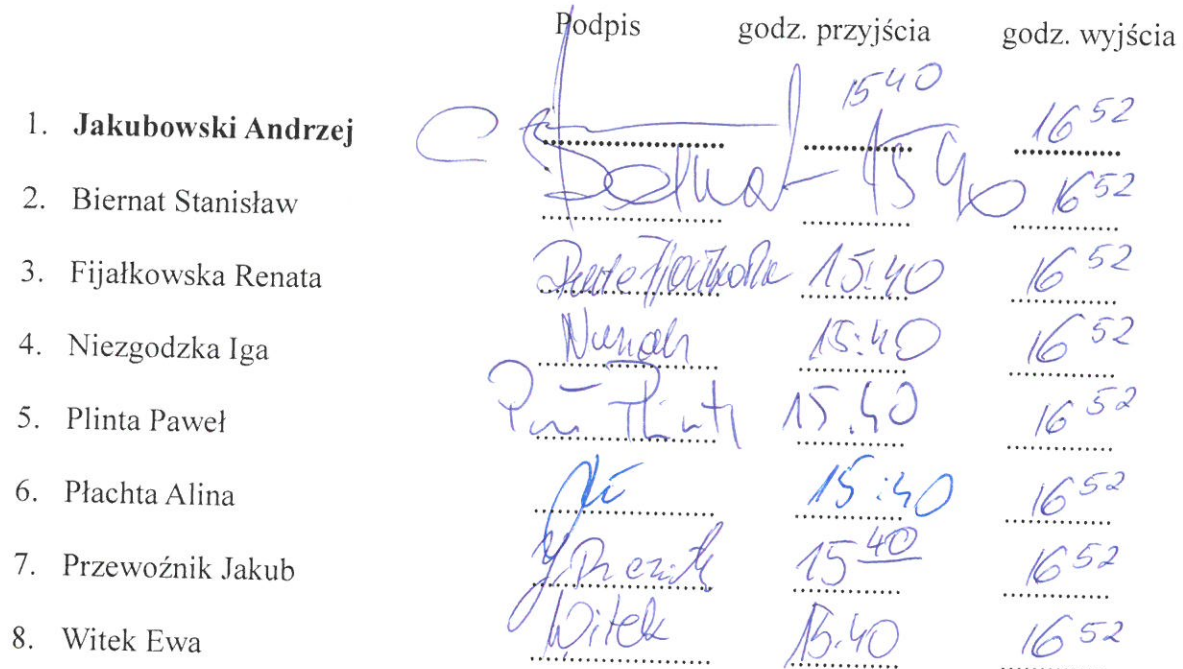 Podpis godz. przyjścia godz. wyjścia
1. Jakubowski Andrzej 15 40 16 52
2. Biernat Stanisław 15 40 16 52
3. Fijałkowska Renata 15:40 16 52
4. Niezgodzka Iga 15:40 16 52
5. Plinta Paweł 15.40 16 52
6. Płachta Alina 15:40 16 52
7. Przewoźnik Jakub 15 40 16 52
8. Witek Ewa Witek 15.40 16 52